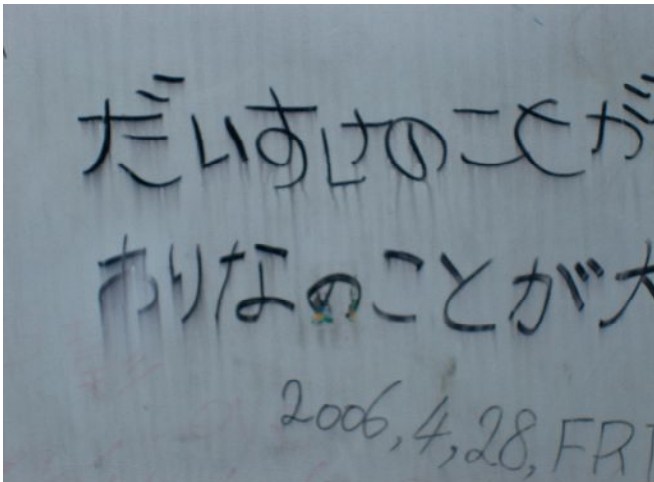 だいすけのことが
ありなのことが大
2006,4,28,FRI